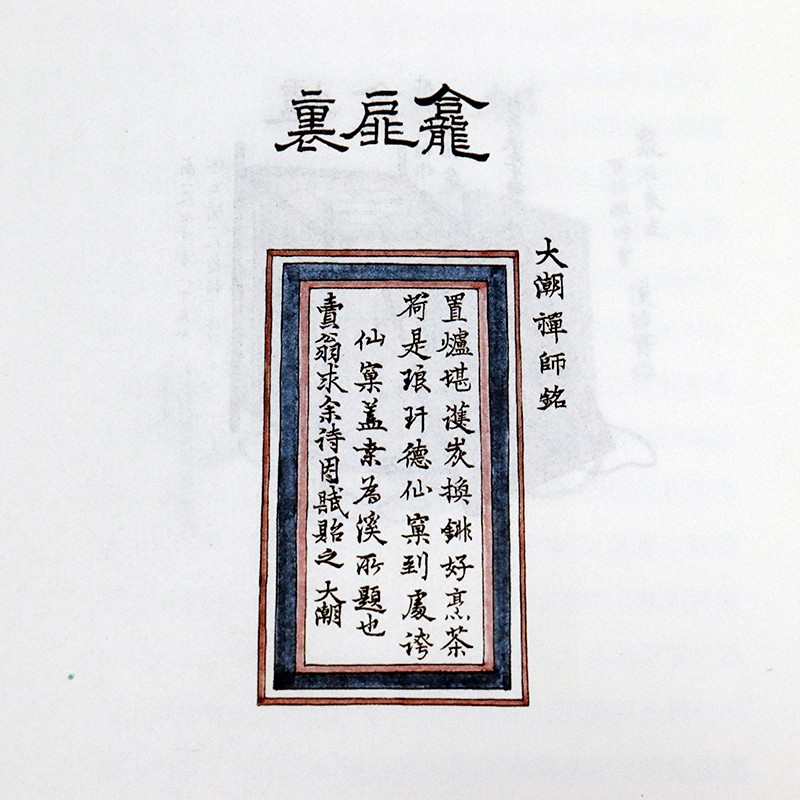 龕扉裏
大潮禪師銘
置爐堪護炭換銚好烹茶
荷是琅玕德仙窠到處誇
仙窠蓋為溪所題也
賣翁求余詩因賦貽之 大潮